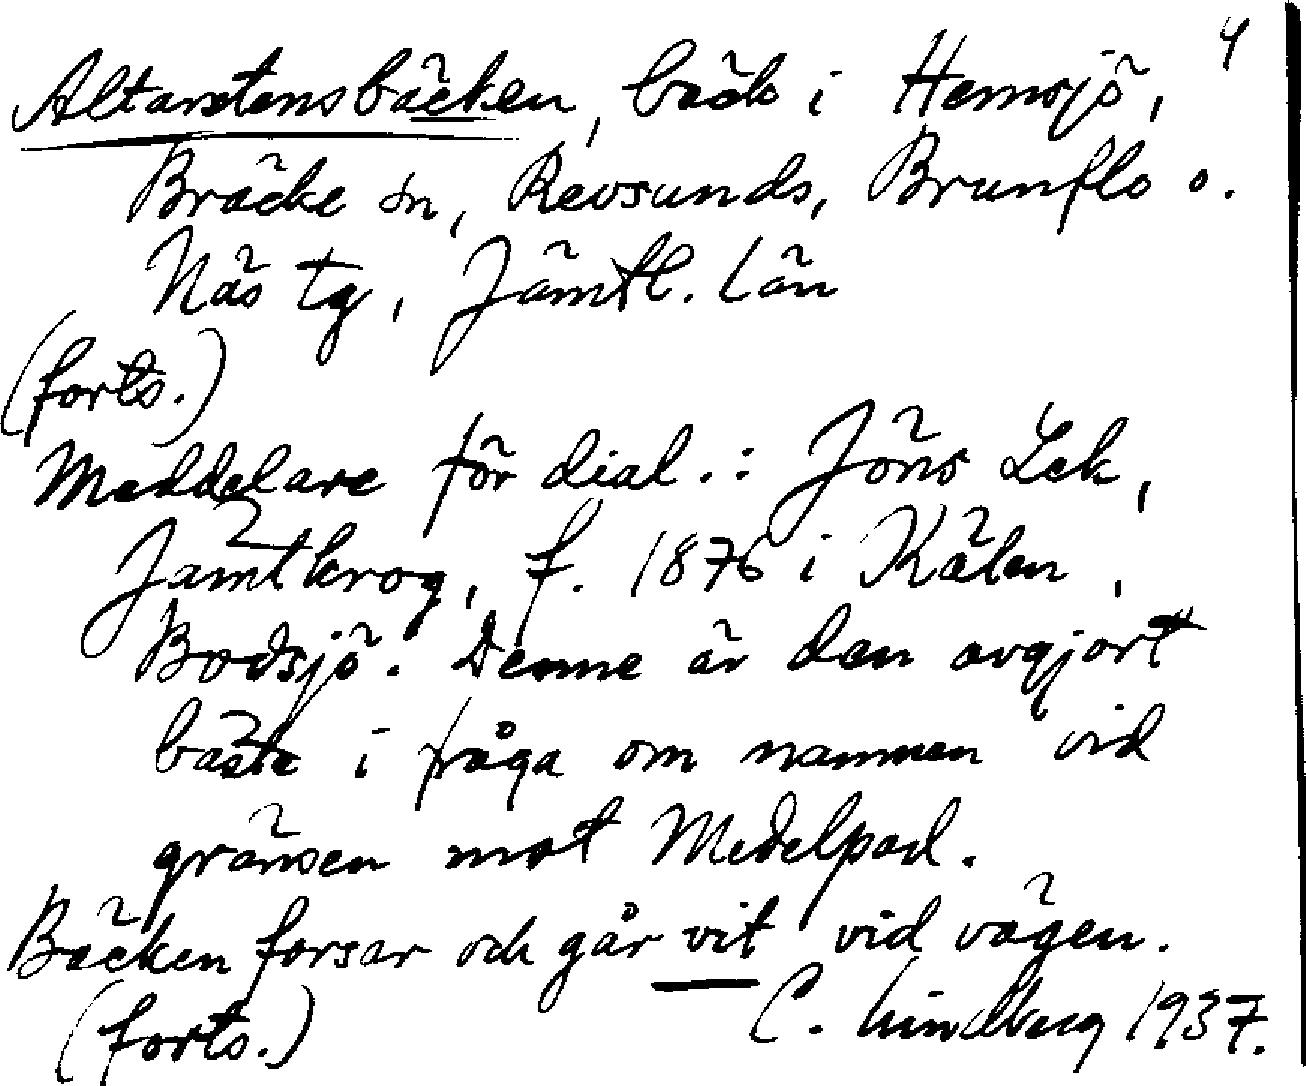 4
Altarstensbäcken, bäck i Hemsjö,
Bräcke sn, Revsunds, Brunflo o.
Näs tg, Jämtl. län
(forts.)
Meddelare för dial.: Jöns Lek,
Jämtkrog, f. 1876 i Kälen,
Bodsjö. Denne är den avgjort
bäste i fråga om namnen vid
gränsen mot Medelpad.
Bäcken forsar och går vit vid vägen.
(forts.) C. Lindberg 1937.